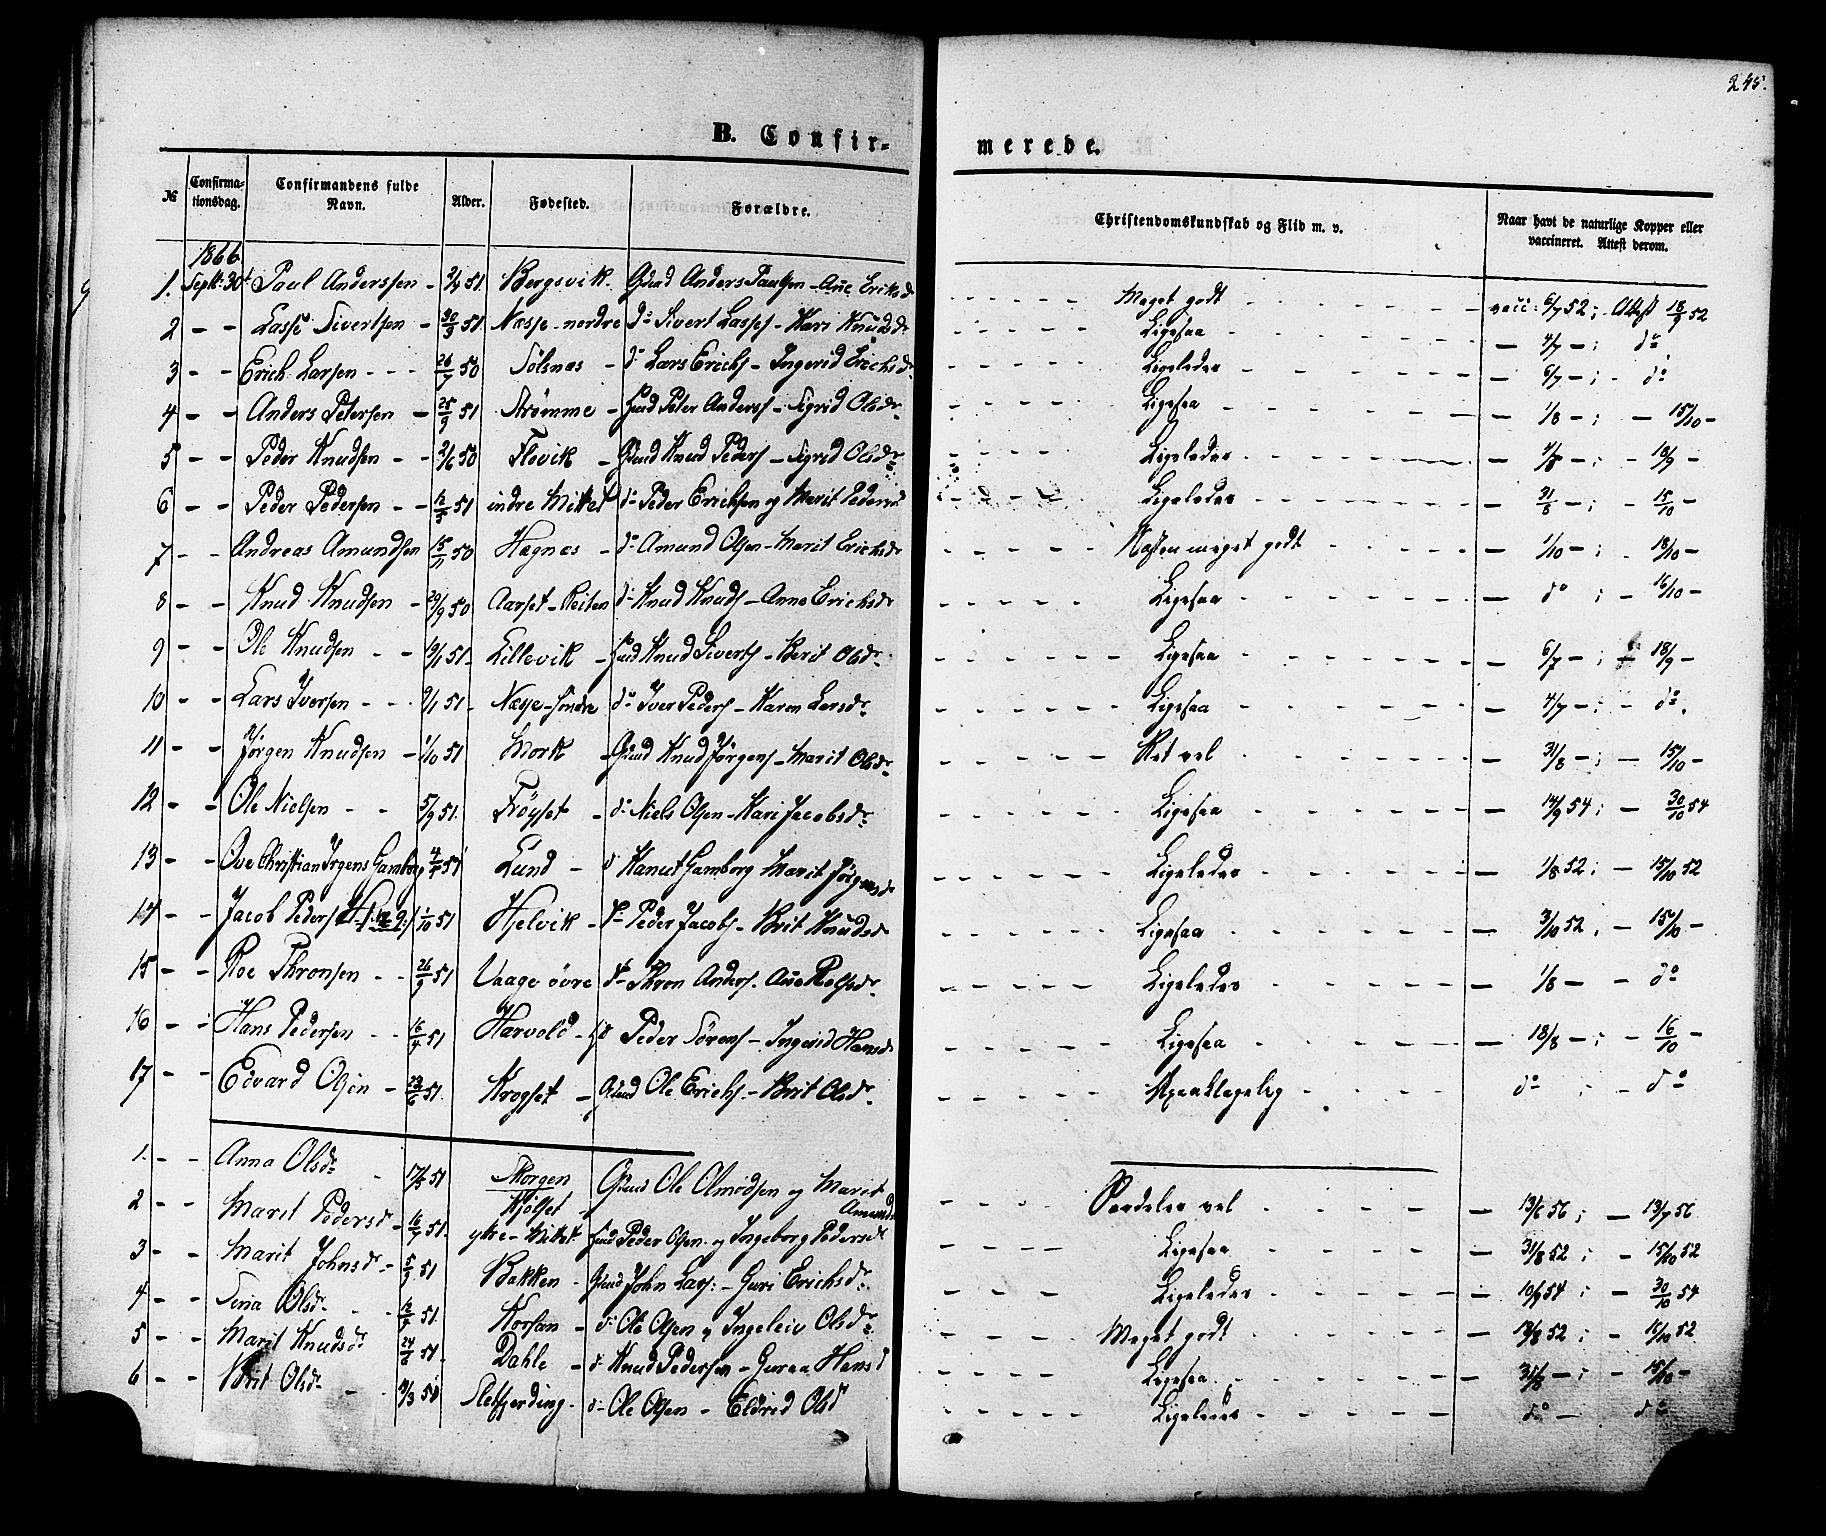 245.
B. Confir-
merede.
№ Confirma-tionsdag. Confirmandens fulde Navn. Alder. Fødested. Forældre. Christendomskundskab og Flid m. v. Naar havt de naturlige Kopper eller vaccineret. Attest derom.
1866
1. Septb: 30t Paul Anderssen - 2/4 51. Bergsvik. Gmd Anders Paulsen - Ane Eriksd - - - - - Meget godt vacc: 6/7 52; Attest 18/9 52
2 - - Lasse Sivertsen - 30/3 51 Næsje nordre do Sivert Lasses - Kari Knudsdr - - - - - Ligesaa - - - - - 4/7 -; do
3 - - Erich Larsen - - - 26/7 50 Sölsnæs - do Lars Erichs - Ingerid Erichsdr - - - - - Ligeledes - - - - - 6/7 -; - do
4 - - Anders Petersen - 25/9 51 Strømme - Hmd Peter Anderss - Sigrid Olsdr - - - - - Ligesaa - - - - - 1/8 -; - 15/10 -
5 - - Peder Knudsen - - 2/6 50 Flovik - Gmd Knud Peders - Sigrid Olsdr - - - - - Ligeledes - - - - - 1/8 -; - 18/9 -
6 - - Peder Pedersen - - 12/5 51 indre Mittet do Peder Erichsen og Marit Pedersd - - - - - Ligeledes - - - - - 31/8 -; - 15/10 -
7 - - Andreas Amundsen 50 Hagnæs - do Amund Olsen - Marit Erichsdr - - - - - Næsten meget godt - - - - 1/10 -; - 18/10 -
8 - - Knud Knudsen - 29/9 50 Aarset-Reiten do Knud Knuds - Anne Erichsdr - - - - - Ligesaa - - - - - do ; - 16/10 -
9 - - Ole Knudsen - - 51 - Lillevik - Hmd Knud Siverts - Berit Olsdr. - - - - - Ligesaa - - - - - 6/7 -; - 18/9 -
10 - - Lars Iversen - - - 9/1 51 - Næsje-söndre do Iver Peders - Karen Larsdr. - - - - - Ligesaa - - - - - 4/7 -; - do.
11 - - Jørgen Knudsen - 1/10 51 Mork - Gmd Knud Jørgens - Marit Olsdr - - - - - Ret vel - - - - - 31/8 -; - 15/10 -
12 - - Ole Nielsen - - 5/9 51. Fröyset - do Niels Olsen - Kari Jacobsdr. - - - - - Ligesaa - - - - - 14/9 54; - 30/10 54
13 - - Ove Christian Irgens Gamborg 51 Lund - do Hanut Gamborg Marit Jörgensdr - - - - - Ligeledes - - - - - 1/8 52; - 15/10 52
14 - - Jacob Peders 1/10 51 Hjelvik - do Peder Jacobs - Brit Knudsd - - - - - Ligesaa - - - - - 3/10 52; - 15/10 -
15 - - Roe Thronsen - - 26/9 51 Vaage övre do Thron Anders. Ane Rolfsdr. - - - - - Ligeledes - - - - - 1/8 - - do
16 - - Hans Pedersen - - 16/4 51 Harvold - Peder Sörens - Ingerid Hansdr - - - - - Ligesaa - - - - - 18/8 -; - 16/10 -
17 - - Edvard Olsen - 23/6 51. Krogset - Gmd Ole Erichs. - Brit Olsdr. - - - - - - - - - do ; - do
1. - - Anna Olsdr - 17/5 51 Skorgen Gmd Ole Olmodsen og Marit Amundsd - - - - Særdeles vel - - - - - 13/6 56; - 13/7 56
Kjölset
2 - - Marit Pedersdr - 16/7 51. ytre-Mittet Hmd Peder Olsen. og Ingeborg Pedersdr - - - - Ligesaa - - - - - 31/8 52; - 15/10 52
3 - - Marit Johnsdr - 51 Bakken - Gmd John Lars: - Guri Erichsdr. - - - - - Ligeledes - - - - - 10/9 54 - 30/10 54
4 - - Sena Olsdr - - 12/7 51. Korsan - do Ole Olsen og Ingeleiv Olsdr. - - - - Meget godt - - - - - 13/8 52; - 15/10 52
5 - - Marit Knudsdr 24/6 51. Dahle - do Knud Pedersen - Guraa Hansd - - - - - Ligesaa - - - - - 31/8 -; - 15/10 -
6 - - Brit Olsdr - - 50 Sletfjerding. do Ole Olsen - Eldrid Olsd - - - - - Ligeledes - - - - - do - do